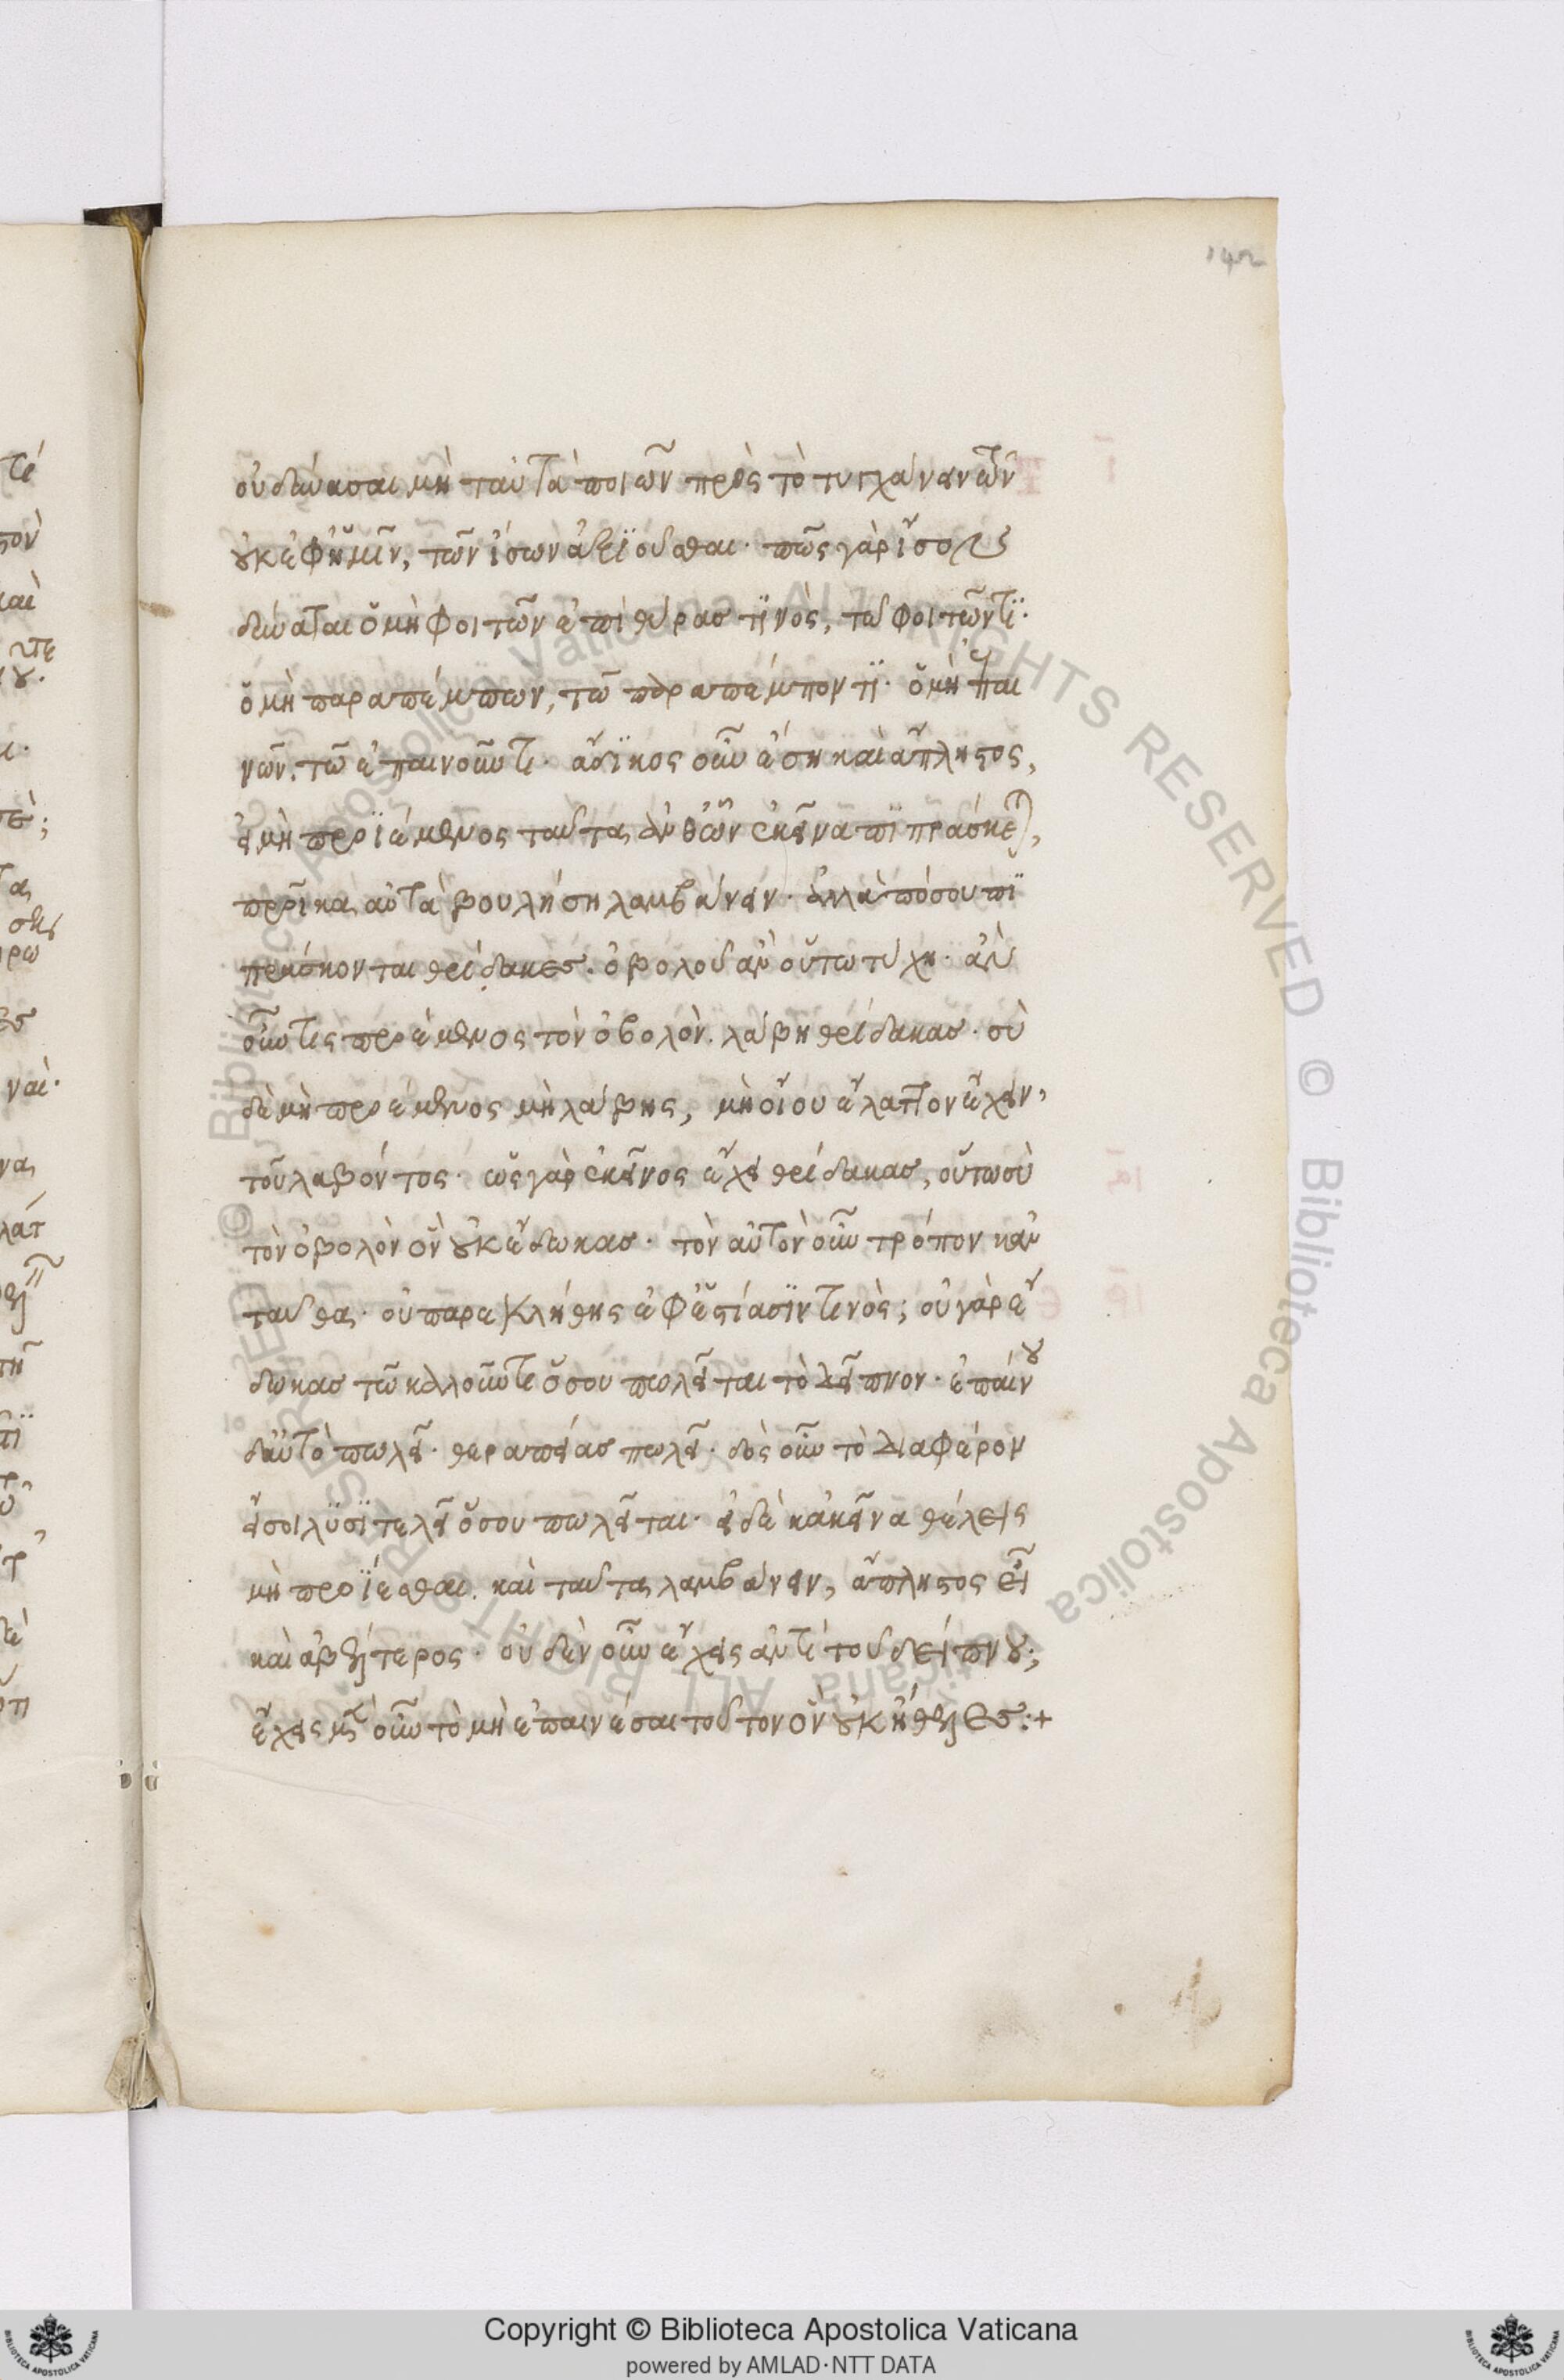 142
οὐ δύνασαι μὴ ταὐτὰ ποιῶν πρὸς τὸ τυγχάνειν τῶν
οὐκ ἐφ' ἡμῖν, τῶν ἴσων ἀξιοῦσθαι· πῶς γὰρ ἴσον
δύναται ὁ μὴ φοιτῶν ἐπὶ θύρας τινὸς, τῷ φοιτῶντι·
ὁ μὴ παραπέμπων, τῷ παραπέμποντι· ὁ μὴ ἐπαι
νῶν, τῷ ἐπαινοῦντι· ἄδικος οὖν ἔση καὶ ἄπληστος,
εἰ μὴ προϊέμενος ταῦτα ἀνθ' ὧν ἐκεῖνα πιπράσκεται,
προῖκα αὐτὰ βουλήση λαμβάνειν· ἀλλὰ πόσου πι
πράσκονται θρίδακες· ὀβολοῦ ἂν οὕτω τύχη· ἂν
οὖν τις προέμενος τὸν ὀβολὸν. λάβη θρίδακας· σὺ
δὲ μὴ προέμενος μὴ λάβης, μὴ οἴου ἔλαττον ἔχειν,
τοῦ λαβόντος· ὡς γὰρ ἐκεῖνος ἔχει θρίδακας, οὕτω σὺ
τὸν ὀβολὸν ὃν οὐκ ἔδωκας· τὸν αὐτὸν οὖν τρόπον κἀν
ταῦθα· οὐ παρεκλήθης ἐφ' ἑστίασίν τινὸς; οὐ γὰρ ἔ
δωκας τῷ καλοῦντι ὅσου πωλεῖται τὸ δεῖπνον· ἐπαίνου
δ' αὐτὸ πωλεῖ· θεραπείας πωλεῖ· δὸς οὖν τὸ διαφέρον
εἴ σοι λυσιτελεῖ ὅσου πωλεῖται· εἰ δὲ κἀκεῖνα θέλεις
μὴ προΐεσθαι. καὶ ταῦτα λαμβάνειν, ἄπληστος εἶ
καὶ ἀβέλτερος· οὐδὲν οὖν ἔχεις ἀντὶ τοῦ δείπνου;
ἔχεις μὲν οὖν τὸ μὴ ἐπαινέσαι τοῦτον ὃν οὐκ ἤθελες:+
Copyright © Biblioteca Apostolica Vaticana
powered by AMLAD·NTT DATA